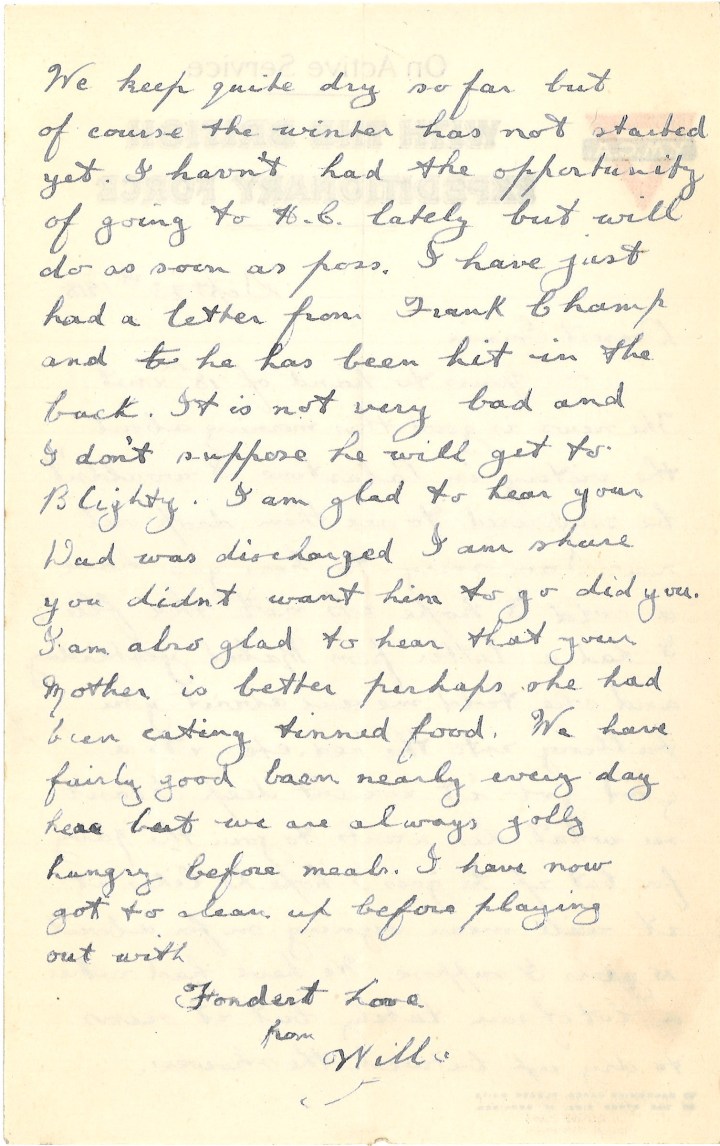 We keep quite dry so far but
of course the winter has not started
yet. I havn't had the opportunity
of going to H.C. lately but will
do as soon as poss. I have just
had a letter from Frank Champ
and to he has been hit in the
back. It is not very bad and
I don't suppose he will get to
Blighty. I am glad to hear your
Dad was discharged I am shure
you didnt want him to go did you.
I am also glad to hear that your
Mother is better perhaps she had
been eating tinned food. We have
fairly good baen nearly every day
here but we are always jolly
hungry before meals. I have now
got to clean up before playing
out with
Fondest Love
from
Will